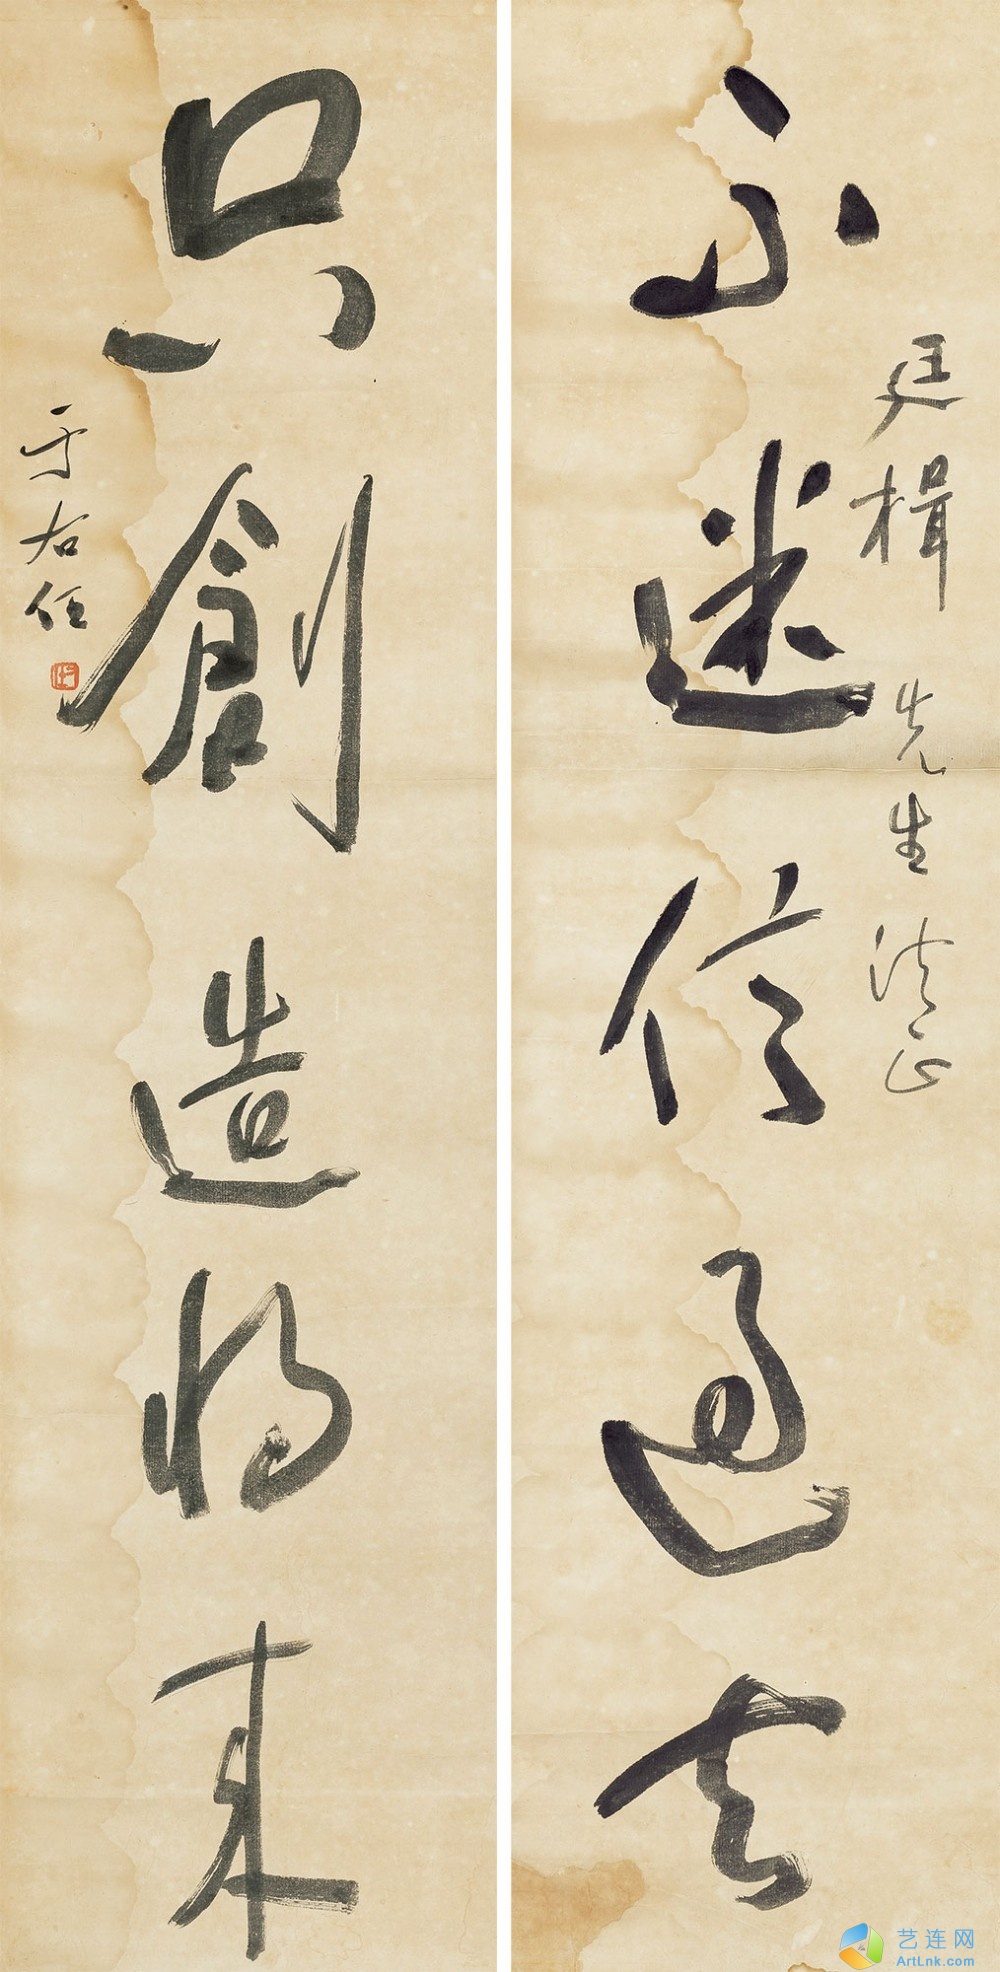 不迷信過去
廷楫先生法正
只創造將來
于右任
艺连网
ArtLnk.com